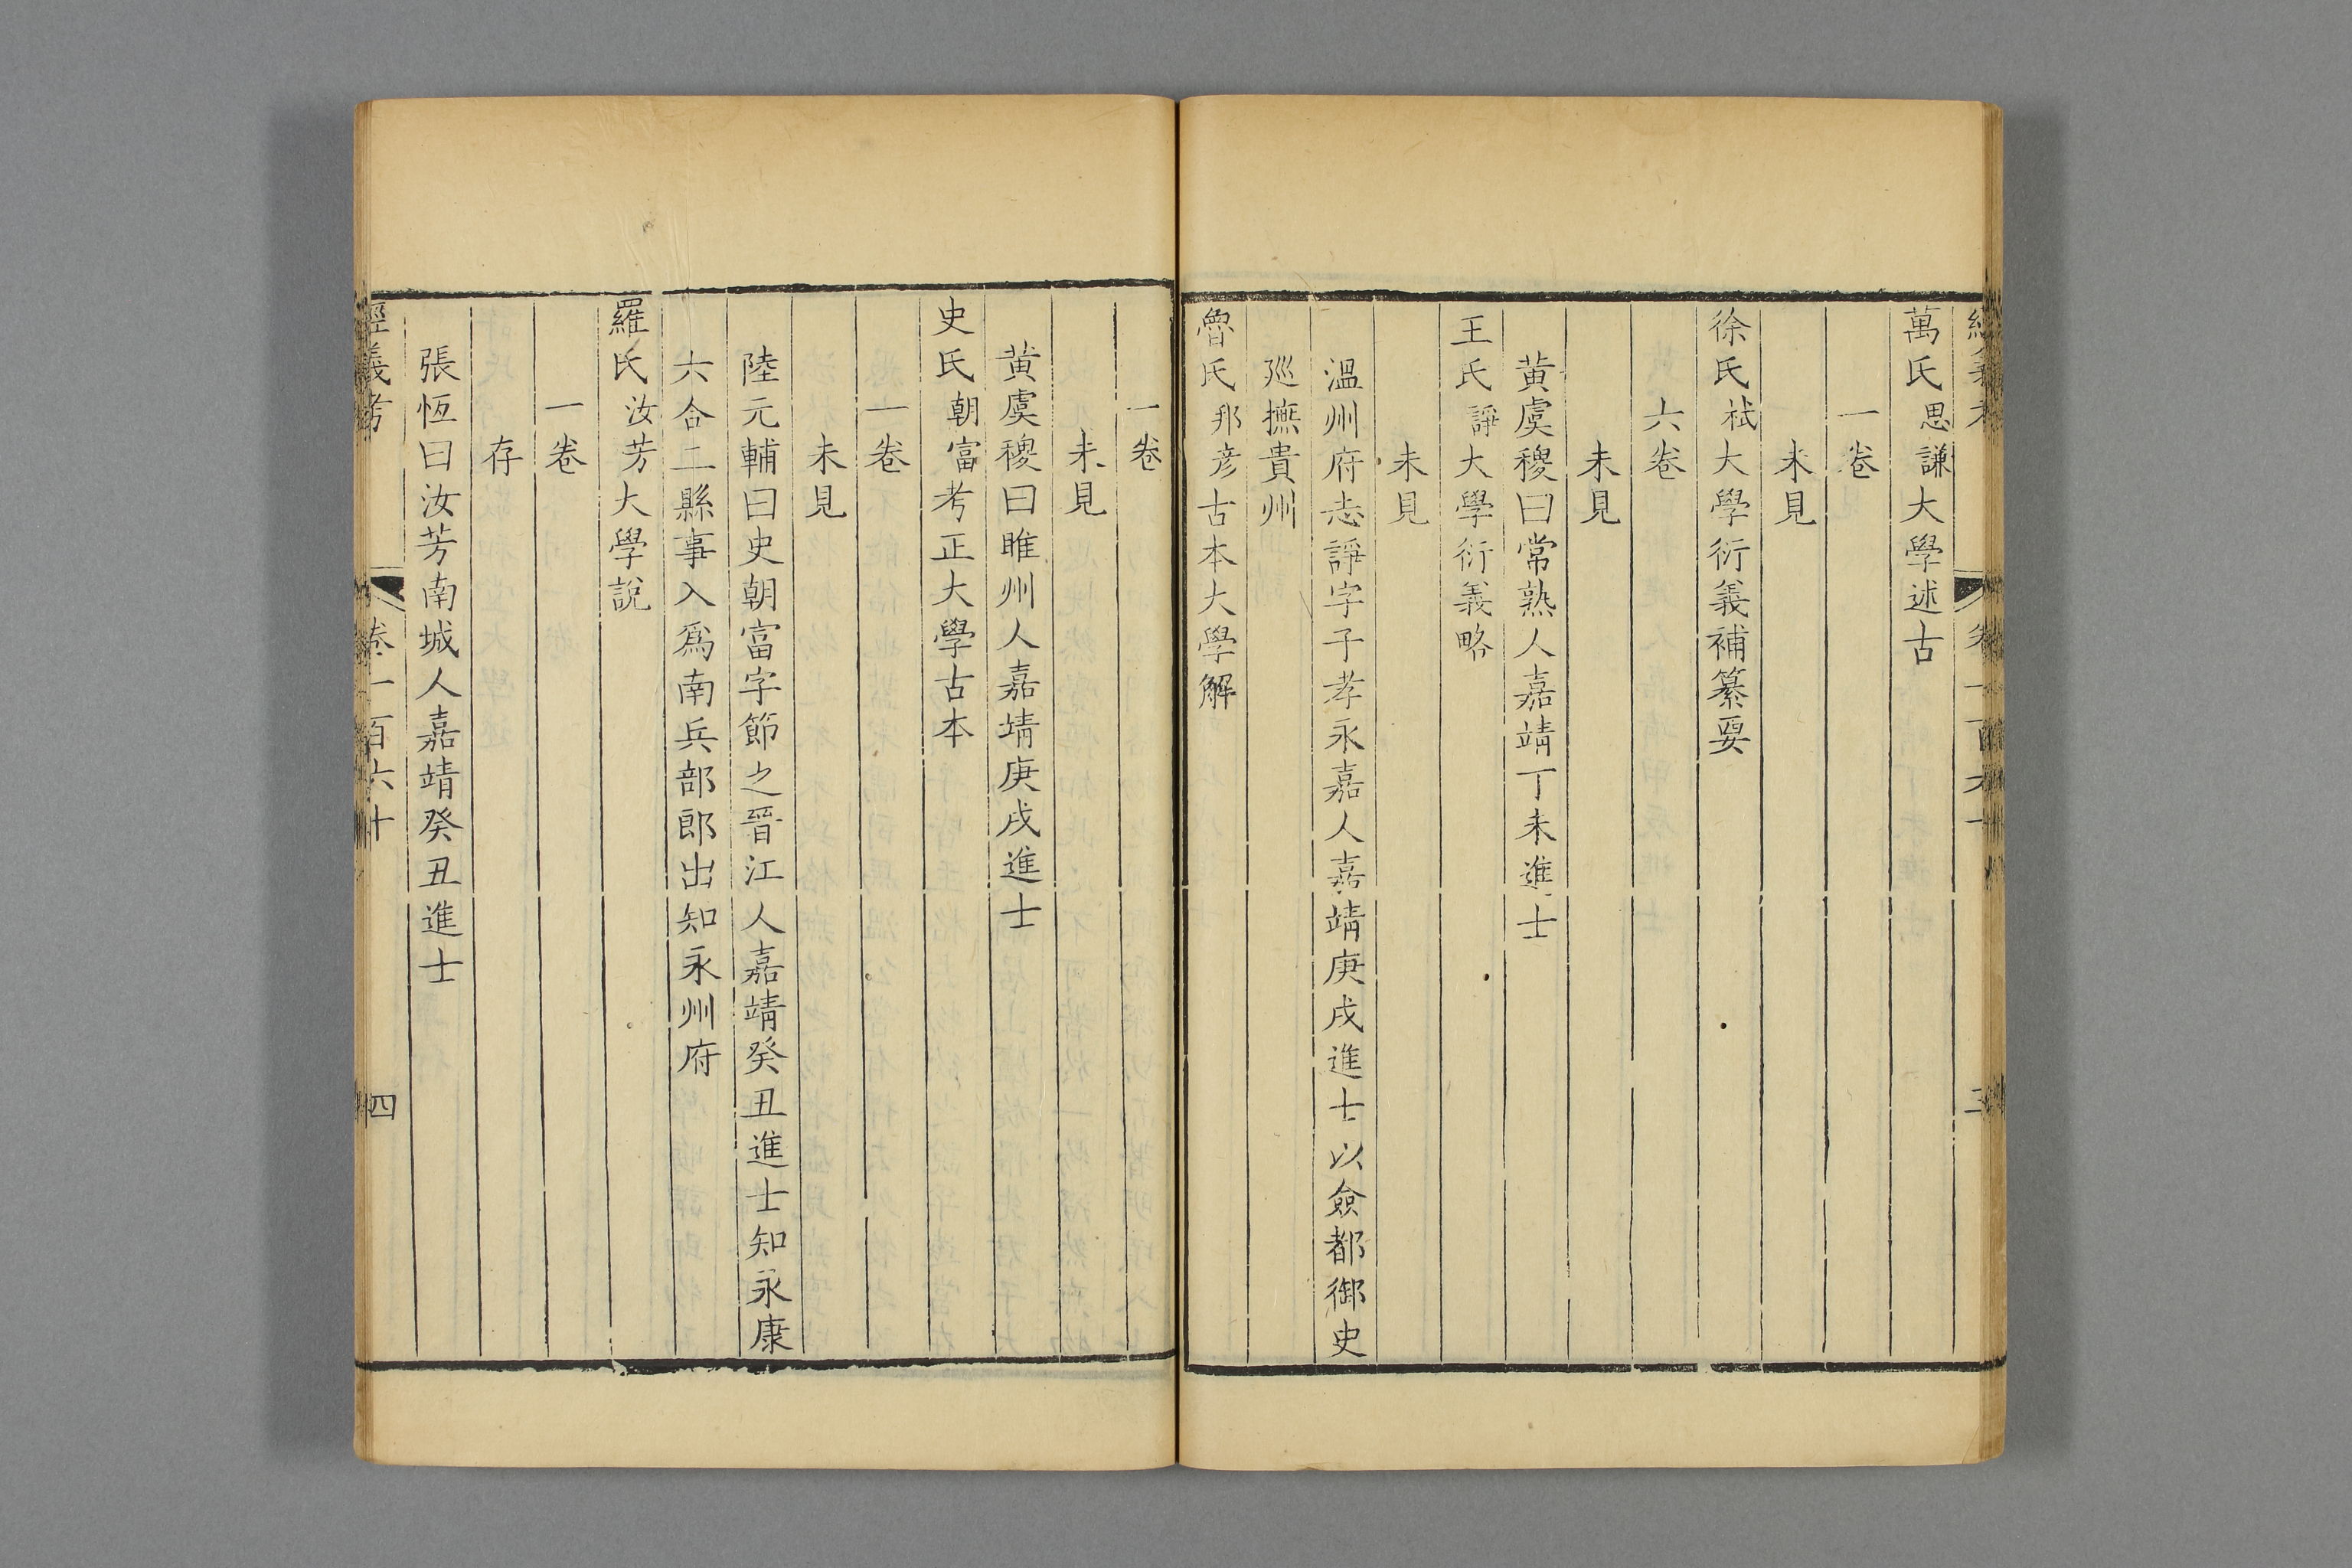 萬氏思謙大學述古
一卷
未見
徐氏栻大學衍義補纂要
六卷
未見
黃虞稷曰常熟人嘉靖丁未進士
王氏諍大學衍義略
未見
溫州府志諍字子孝永嘉人嘉靖庚戌進士以僉都御史
廵撫貴州
魯氏邦彦古本大學解
一卷
未見
黃虞稷曰睢州人嘉靖庚戌進士
史氏朝富考正大學古本
一卷
未見
陸元輔曰史朝富字節之晉江人嘉靖癸丑進士知永康
六合二縣事入爲南兵部郎出知永州府
羅氏汝芳大學說
一卷
存
張恆曰汝芳南城人嘉靖癸丑進士
經義考 卷一百六十 四